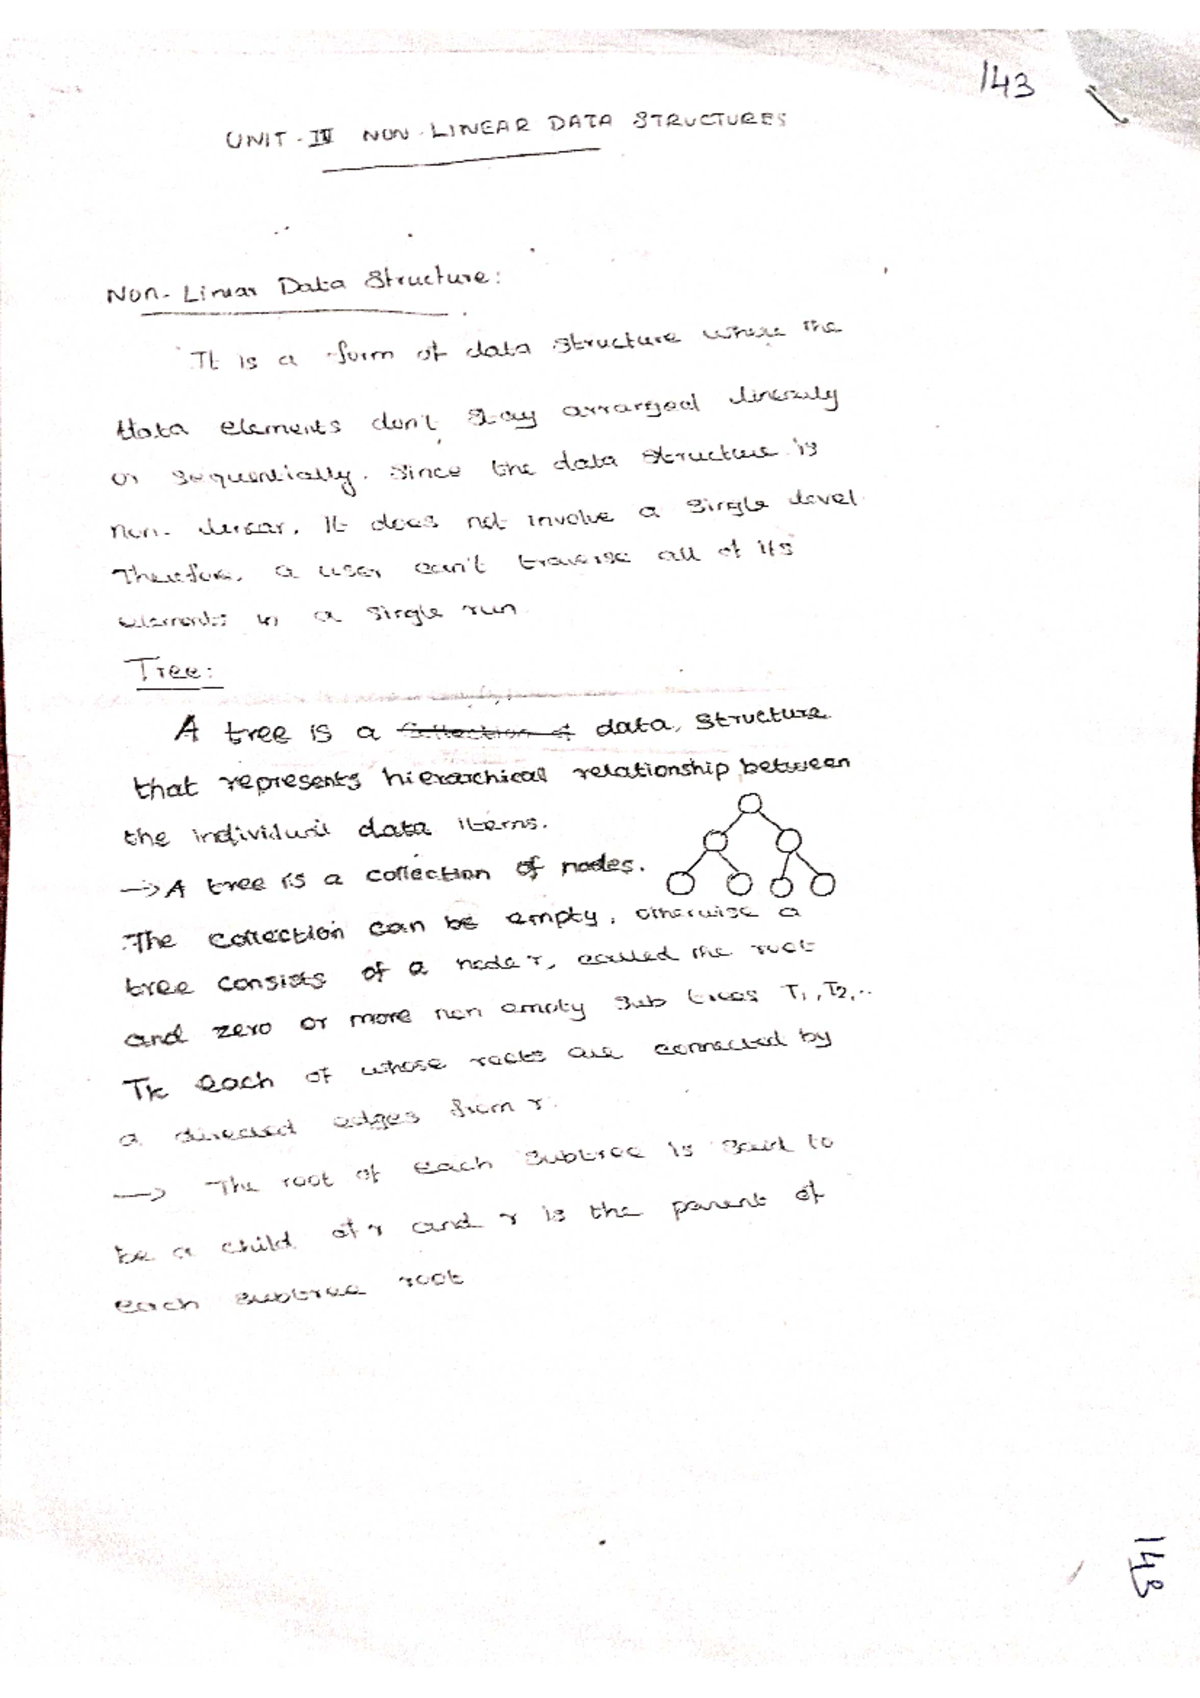 143
UNIT-IV NON-LINEAR DATA STRUCTURES
Non-Linear Data Structure:
It is a form of data structure where the
data elements don't stay arranged linearly
or sequentially. Since the data structure is
non-linear, It does not involve a single level
Therefore, a user can't traverse all of its
elements in a single run.
Tree:
A tree is a collection of data structure
that represents hierarchical relationship between
the individual data items.
→ A tree is a collection of nodes.
The collection can be empty, otherwise a
tree consists of a node r, called the root
and zero or more non empty sub trees T1, T2,..
Tk each of whose roots are connected by
a directed edges from r.
→ The root of each subtree is said to
be a child of r and r is the parent of
each subtree root
143